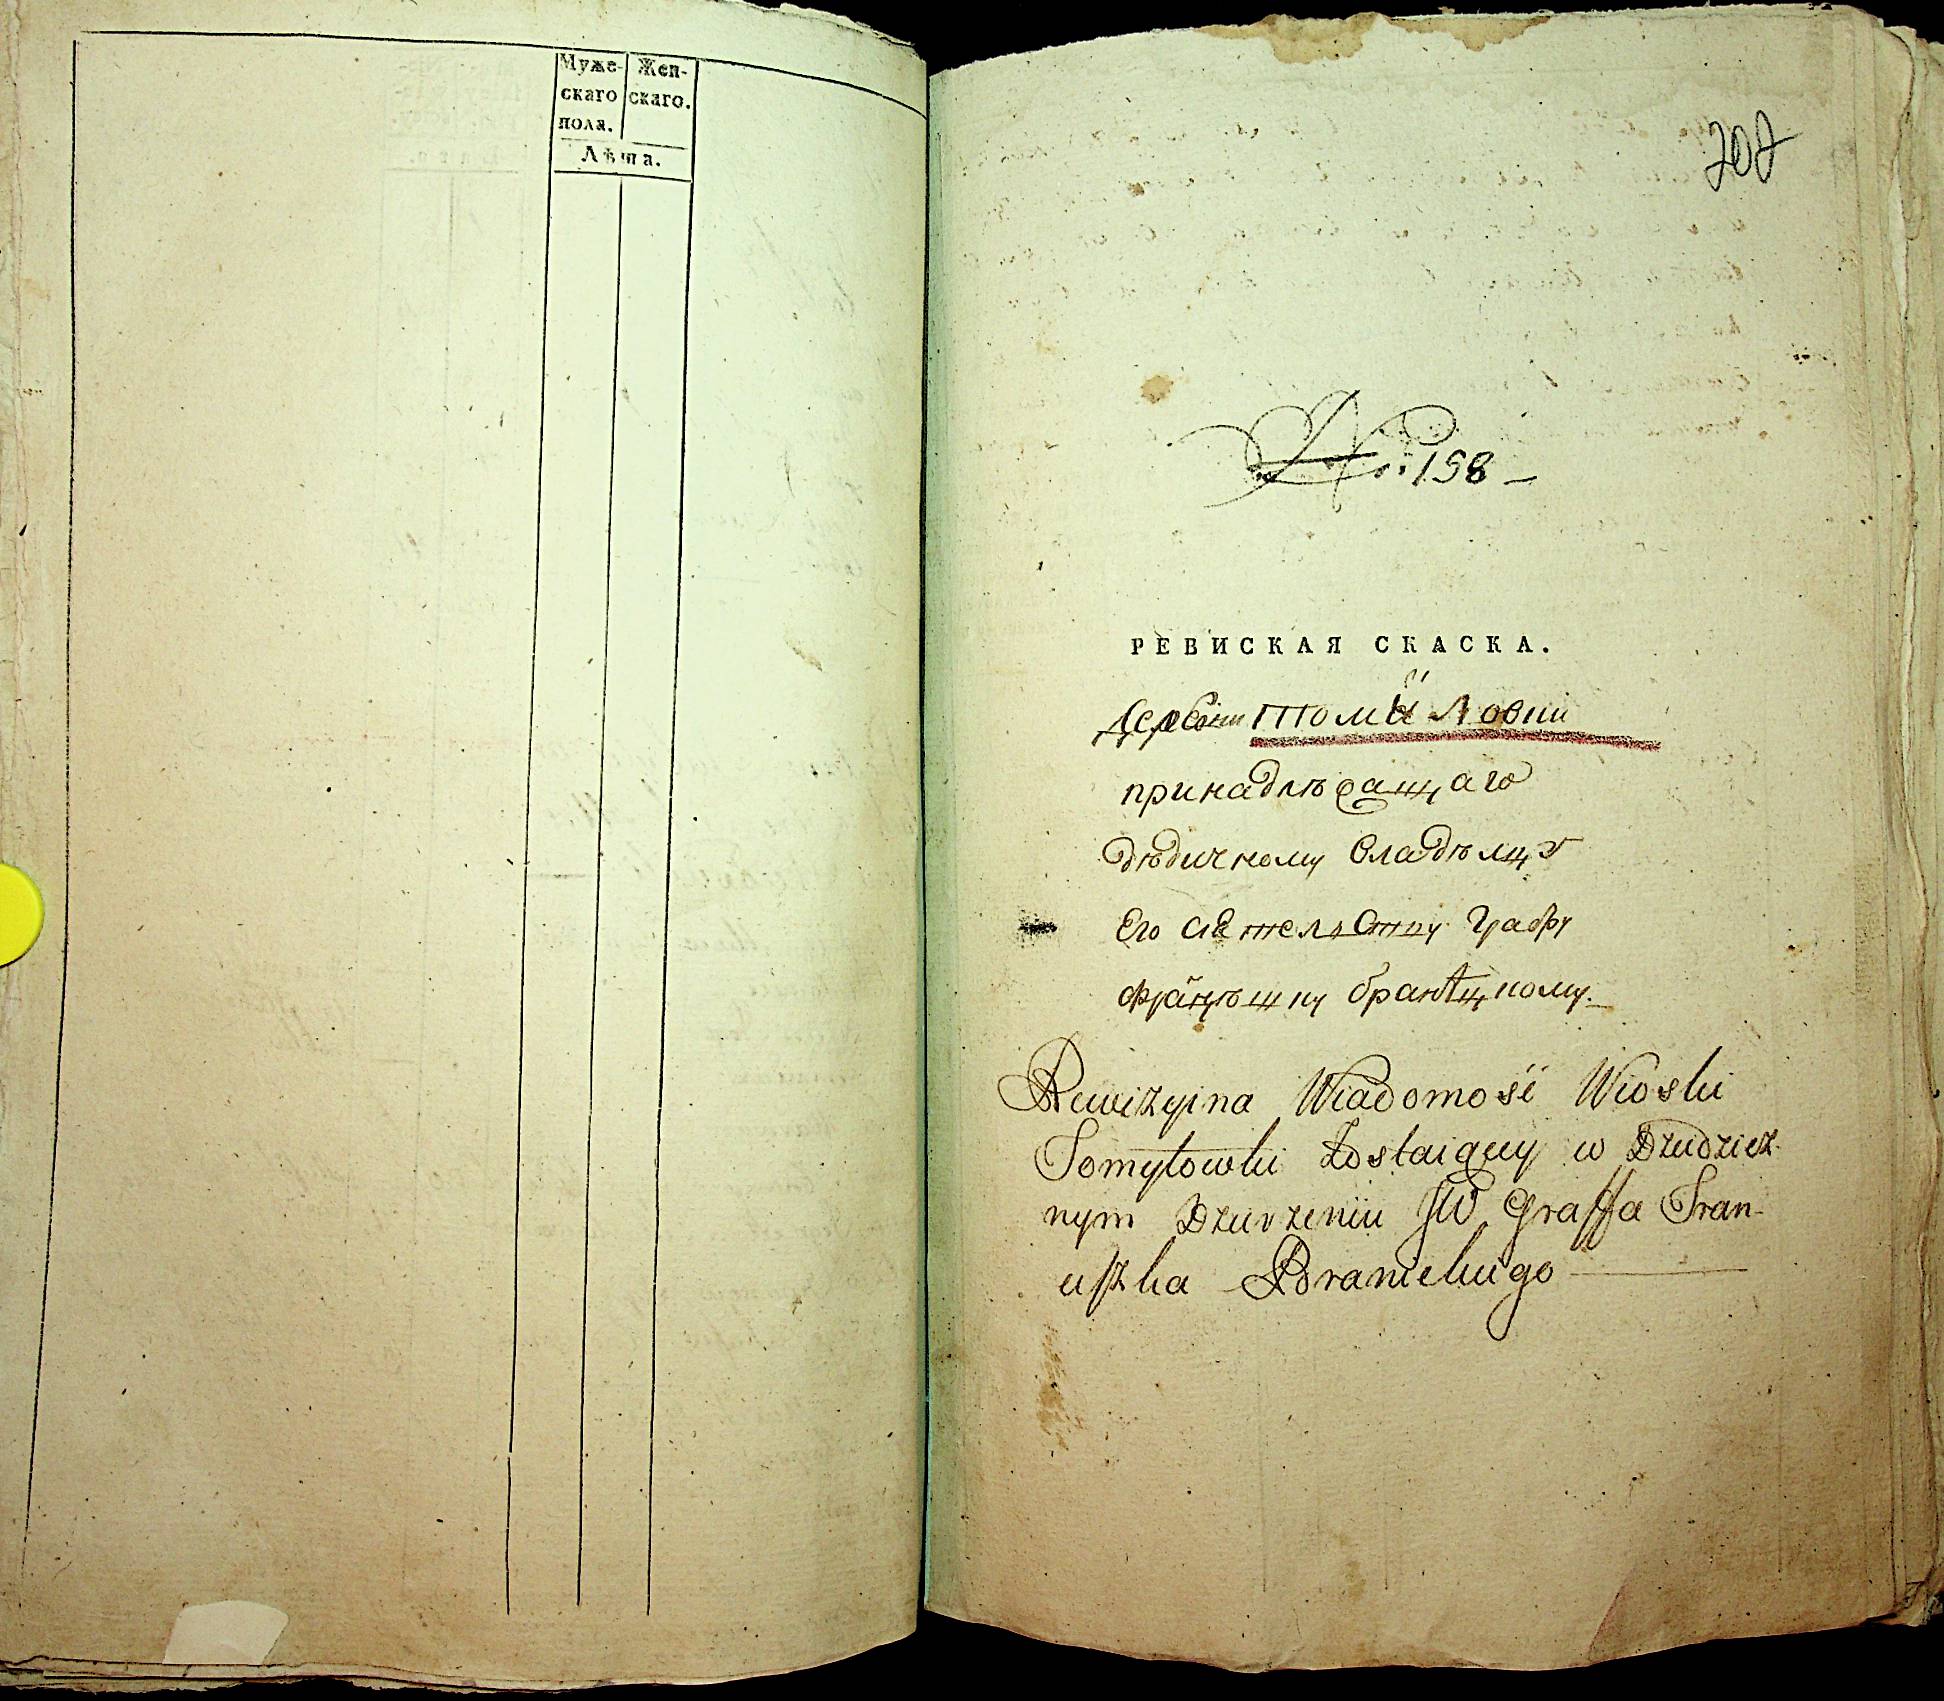 Муже- Жен-
скаго скаго.
пола.
Лѣта.
207
No. 158
РЕВИСКАЯ СКАСКА.
Деревни Томиловки
принадлѣжащаго
дѣдичному владѣлцу
Его сіятелству графу
францѣшку браницкому.
Rewizyina Wiadomość Wioski
Tomyłowki Zostaiącey w Dziedzicz-
nym Dzierżeniu JW Graffa Fran-
uszka Branickiego